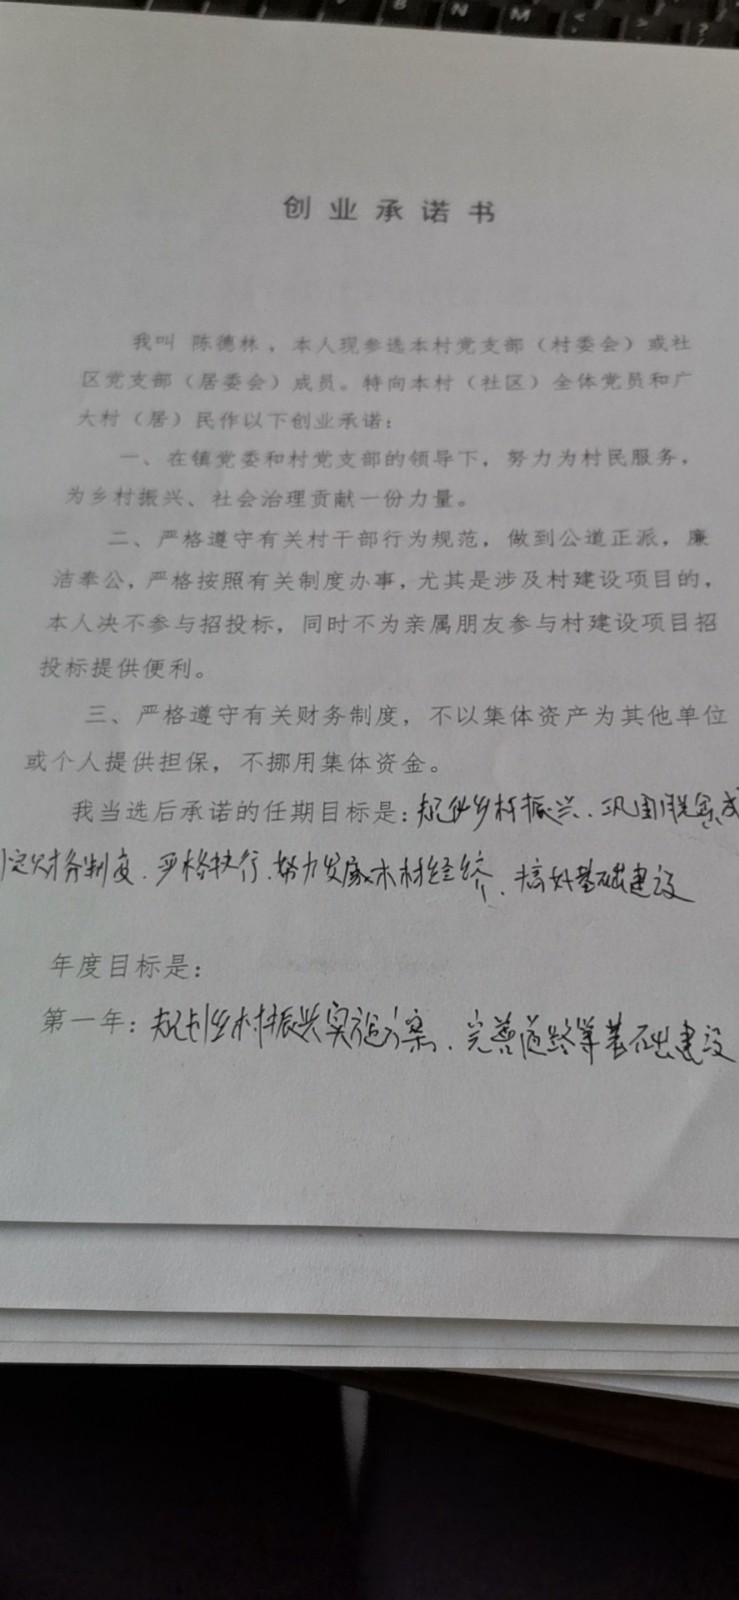 B N M
创业承诺书
我叫 陈德林，本人现参选本村党支部（村委会）或社
区党支部（居委会）成员。特向本村（社区）全体党员和广
大村（居）民作以下创业承诺：
一、在镇党委和村党支部的领导下，努力为村民服务，
为乡村振兴、社会治理贡献一份力量。
二、严格遵守有关村干部行为规范，做到公道正派，廉
洁奉公，严格按照有关制度办事，尤其是涉及村建设项目的，
本人决不参与招投标，同时不为亲属朋友参与村建设项目招
投标提供便利。
三、严格遵守有关财务制度，不以集体资产为其他单位
或个人提供担保，不挪用集体资金。
我当选后承诺的任期目标是：规划乡村振兴、巩固脱贫成
定财务制度、严格执行、努力发展木材经济、搞好基础建设
年度目标是：
第一年：规划乡村振兴实施方案、完善道路等基础建设